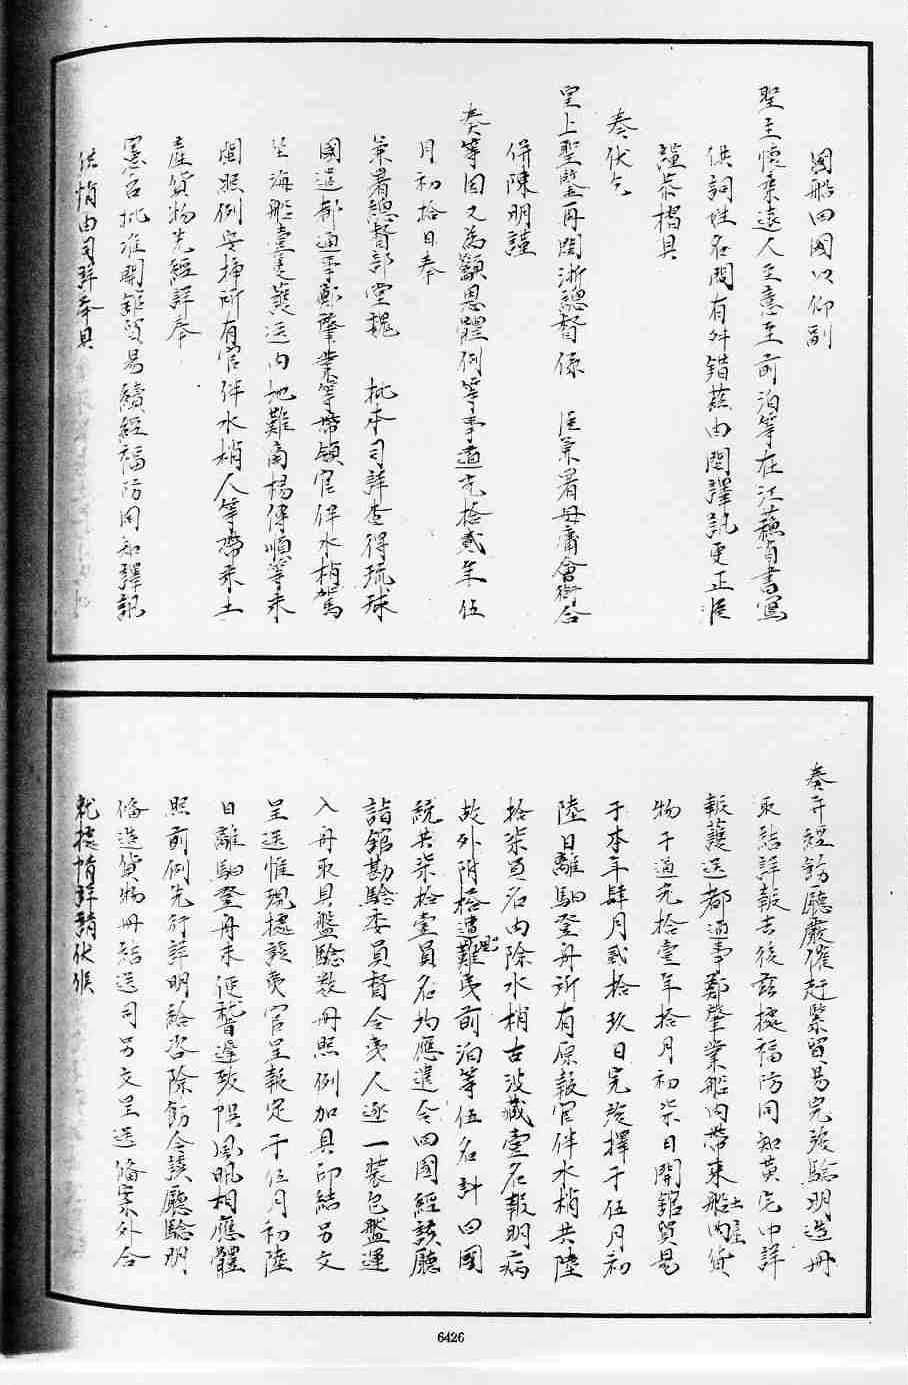 國船回國以仰副
聖主懷柔遠人至意至前泊等在江蘇省書寫
供詞姓名間有舛錯茲由閩譯訊更正准
謹恭摺具
奏伏乞
皇上聖鑒再閩浙總督係 臣兼署毋庸會銜合
併陳明謹
奏等因又為籲恩體例等事道光拾貳年伍
月初拾日奉
兼署總督部堂魏 批本司詳查得琉球
國遣都通事鄭肇業等帶領官伴水梢駕
坐海船壹隻護送內地難商楊傳順等來
閩照例安插所有官伴水梢人等帶來土
產貨物先經詳奉
憲台批准開館貿易續經福防同知譯訊
供情由司詳奉具
奏并經飭廳嚴催趕緊貿易完竣驗明造冊
取結詳報去後茲據福防同知黃宅中詳
報護送都通事鄭肇業船內帶來土產貨
物于道光拾壹年拾月初柒日開館貿易
于本年肆月貳拾玖日完竣擇于伍月初
陸日離驛登舟所有原報官伴水梢共陸
拾柒員名內除水梢古波藏壹名報明病
故外附搭遭難夷前泊等伍名計回國
統共柒拾壹員名均應遣令回國經該廳
詣館勘驗委員督令夷人逐一裝包盤運
入舟取具盤驗數冊照例加具印結另文
呈送惟現據該夷官呈報定于伍月初陸
日離驛登舟未便稽遲致悞風汛相應體
照前例先行詳明給咨除飭令該廳驗明
備造貨物冊結送司另文呈送備案外合
就據情詳請伏候
6426